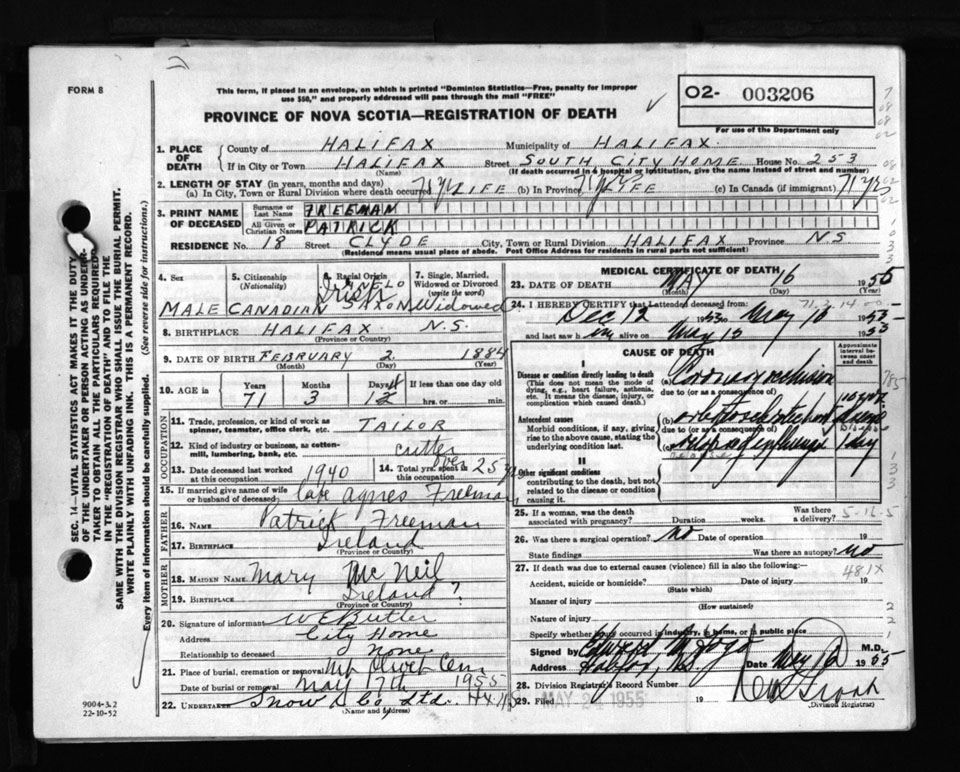 FORM 8
This form, if placed in an envelope, on which is printed "Dominion Statistics—Free, penalty for improper
use $50," and properly addressed will pass through the mail "FREE"
PROVINCE OF NOVA SCOTIA—REGISTRATION OF DEATH
O2- 003206
For use of the Department only
1. PLACE OF DEATH
County of HALIFAX Municipality of HALIFAX.
If in City or Town HALIFAX Street SOUTH CITY HOME House No. 253
(Name) (If death occurred in a hospital or institution, give the name instead of street and number)
2. LENGTH OF STAY (in years, months and days)
(a) In City, Town or Rural Division where death occurred 71 yr LIFE (b) In Province 71 yrs LIFE (c) In Canada (if immigrant) 71 yrs
3. PRINT NAME OF DECEASED
Surname or Last Name FREEMAN
All Given or Christian Names PATRICK
RESIDENCE No. 18 Street CLYDE City, Town or Rural Division HALIFAX Province NS
(Residence means usual place of abode. Post Office Address for residents in rural parts not sufficient)
4. Sex MALE
5. Citizenship (Nationality) CANADIAN
6. Racial Origin ANGLO SAXON Irish
7. Single, Married, Widowed or Divorced (write the word) Widowed
8. BIRTHPLACE HALIFAX N.S.
(Province or Country)
9. DATE OF BIRTH FEBRUARY 2. 1884
(Month) (Day) (Year)
10. AGE in Years Months Days If less than one day old
71 3 14 hrs. or min.
OCCUPATION
11. Trade, profession, or kind of work as spinner, teamster, office clerk, etc. TAILOR
12. Kind of industry or business, as cotton-mill, lumbering, bank, etc. cutter
13. Date deceased last worked at this occupation 1940
14. Total yrs. spent in this occupation over 25 yrs
15. If married give name of wife or husband of deceased Late Agnes Freeman
FATHER
16. NAME Patrick Freeman
17. BIRTHPLACE Ireland
(Province or Country)
MOTHER
18. MAIDEN NAME Mary McNeil
19. BIRTHPLACE Ireland ?
(Province or Country)
20. Signature of informant W E Butler
Address City Home
Relationship to deceased none
21. Place of burial, cremation or removal Mt Olivet Cem
Date of burial or removal May 17th 1955
22. UNDERTAKER Snow & Co Ltd. Hx NS
(Name and Address)
MEDICAL CERTIFICATE OF DEATH
23. DATE OF DEATH MAY 16 1955
(Month) (Day)
24. I HEREBY CERTIFY that I attended deceased from: 71.3.14
Dec 12 1953 to May 16 1955
and last saw him alive on May 15 1955
CAUSE OF DEATH
Approximate interval between onset and death
I
Disease or condition directly leading to death
(This does not mean the mode of dying, e.g., heart failure, asthenia, etc. It means the disease, injury, or complication which caused death.)
(a) Coronary occlusion
due to (or as a consequence of)
Antecedent causes
Morbid conditions, if any, giving rise to the above cause, stating the underlying condition last.
(b) arteriosclerotic heart disease
due to (or as a consequence of)
(c) 1 day
II
Other significant conditions
contributing to the death, but not related to the disease or condition causing it.
25. If a woman, was the death associated with pregnancy? Duration weeks. Was there a delivery?
26. Was there a surgical operation? no Date of operation 19
State findings Was there an autopsy? no
27. If death was due to external causes (violence) fill in also the following:—
481X
Accident, suicide or homicide? Date of injury 19
(State which)
Manner of injury
(How sustained)
Nature of injury
Specify whether injury occurred in industry, in home, or in public place
Signed by Edward M.D.
Address Halifax, N.S. Date May 16 1955
28. Division Registrar's Record Number
29. Filed 19
MAY 1955
(Division Registrar)
9004-3.2
22-10-52
SEC. 14—VITAL STATISTICS ACT MAKES IT THE DUTY
OF THE UNDERTAKER OR PERSON ACTING AS UNDER-
TAKER TO OBTAIN ALL THE PARTICULARS REQUIRED
IN THE "REGISTRATION OF DEATH" AND TO FILE THE
SAME WITH THE DIVISION REGISTRAR WHO SHALL ISSUE THE BURIAL PERMIT.
WRITE PLAINLY WITH UNFADING INK. THIS IS A PERMANENT RECORD.
Every item of information should be carefully supplied. (See reverse side for instructions.)